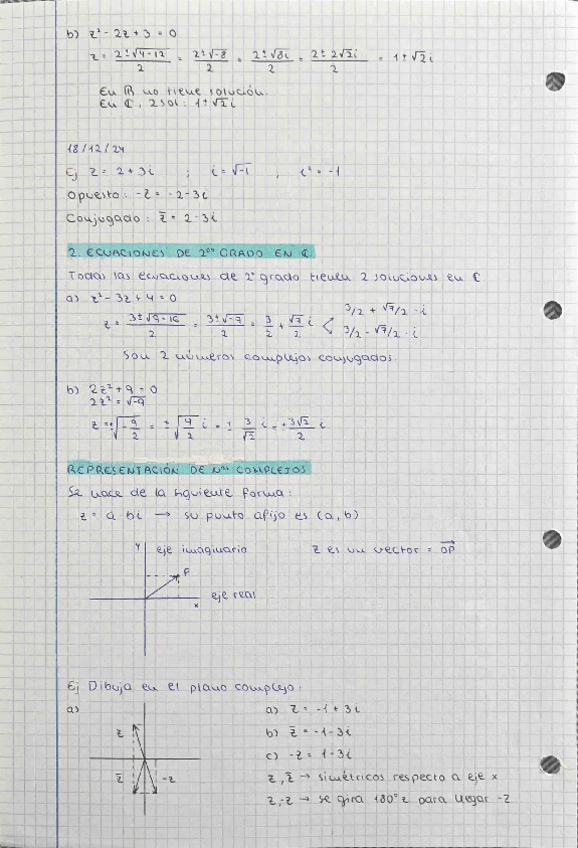 b) z² - 2z + 3 = 0
z = 2±√4-12 / 2 = 2±√-8 / 2 = 2±√8i / 2 = 2±2√2i / 2 = 1±√2i
En ℝ no tiene solución.
En ℂ, 2 sol: 1±√2i
18/12/24
Ej z = 2+3i ; i = √-1 , i² = -1
Opuesto: -z = -2-3i
Conjugado: z̄ = 2-3i
2. ECUACIONES DE 2º GRADO EN ℂ
Todas las ecuaciones de 2º grado tienen 2 soluciones en ℂ
a) z² - 3z + 4 = 0
z = 3±√9-16 / 2 = 3±√-7 / 2 = 3/2 + √7/2 i < 3/2 + √7/2 · i
3/2 - √7/2 · i
Son 2 números complejos conjugados.
b) 2z² + 9 = 0
2z² = √-9
z = ±√-9/2 = ±√9/2 i = ± 3/√2 i = ± 3√2/2 i
REPRESENTACIÓN DE Nos COMPLEJOS
Se hace de la siguiente forma:
z = a bi → su punto afijo es (a, b)
Y eje imaginario z es un vector = OP→
P
eje real
x
Ej Dibuja en el plano complejo:
a) a) z = -1+3i
z b) z̄ = -1-3i
c) -z = 1-3i
z̄ -z z, z̄ → simétricos respecto a eje x
z, -z → se gira 180º z para llegar -z